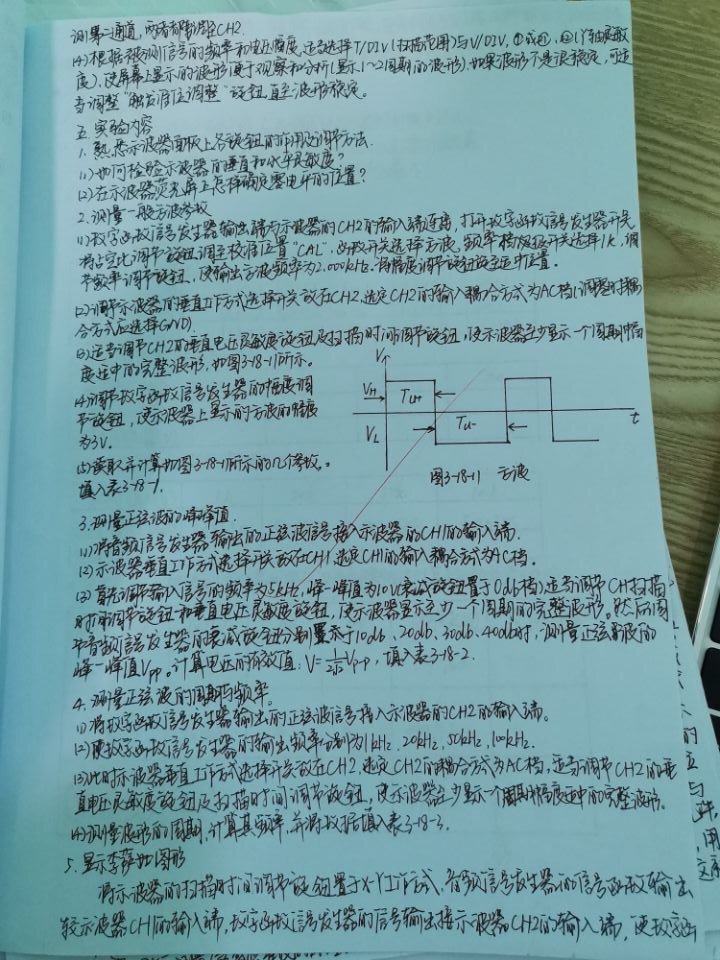 测第二通道,两者都需调至CH2.
(4)根据被测信号的频率和电压幅度,适当选择T/DIV(扫描范围)与V/DIV,
度),使屏幕上显示的波形便于观察和分析(显示1~2周期的波形).如果波形不是很稳定,可适
当调整"触发准位调整"旋钮,直至波形稳定。
五.实验内容
1.熟悉示波器面板上各旋钮的作用及调节方法.
(1)如何检验示波器的垂直和水平灵敏度?
(2)在示波器荧光屏上怎样确定零电平的位置?
2.测量一般方波参数
(1)数字函数信号发生器输出端与示波器的CH2的输入端连接,打开数字函数信号发生器开关
将占空比调节旋钮调至校准位置"CAL",函数开关选择方波,频率档级按开关选择1K,调
节频率调节旋钮,使输出方波频率为2.000kHz.将幅度调节旋钮旋至适中位置.
(2)调节示波器的垂直工作方式选择开关放在CH2,选定CH2的输入耦合方式为AC档(调整时耦
合方式应选择GND)
(3)适当调节CH2的垂直电压灵敏度旋钮及扫描时间调节旋钮,使示波器至少显示一个周期幅
度适中的完整波形,如图3-18-11所示。
(4)调节数字函数信号发生器的幅度调
节旋钮,使示波器上显示的方波的幅度
为3V.
(5)读取并计算如图3-18-11所示的几个参数。
填入表3-18-1.
V
VH
Tu+
VL
Tu-
t
图3-18-11 方波
3.测量正弦波的峰峰值.
(1)将音频信号发生器输出的正弦波信号接入示波器的CH1的输入端.
(2)示波器垂直工作方式选择开关放在CH1,选定CH1的输入耦合方式为AC档。
(3)首先调节输入信号的频率为5kHz,峰-峰值为10V(衰减旋钮置于0db档)适当调节CH扫描
时间调节旋钮和垂直电压灵敏度旋钮,使示波器显示至少一个周期的完整波形。然后调
节音频信号发生器的衰减旋钮分别置示于10db,20db,30db,40db时,测量正弦波的
峰-峰值Vpp。计算电压的有效值:V=1/2√2 Vp-p,填入表3-18-2.
4.测量正弦波的周期与频率。
(1)将数字函数信号发生器输出的正弦波信号接入示波器的CH2的输入端。
(2)使数字函数信号发生器的输出频率分别为1kHz,20kHz,50kHz,100kHz.
(3)此时示波器垂直工作方式选择开关放在CH2,选定CH2的耦合方式为AC档,适当调节CH2的垂
直电压灵敏度旋钮及扫描时间调节旋钮,使示波器至少显示一个周期幅度适中的完整波形.
(4)测量波形的周期,计算其频率,并将数据填入表3-18-3.
5.显示李萨如图形
将示波器的扫描时间调节旋钮置于X-Y工作方式,音频信号发生器的信号函数输出
接示波器CH1的输入端,数字函数信号发生器的信号输出接示波器CH2的输入端,使数字函